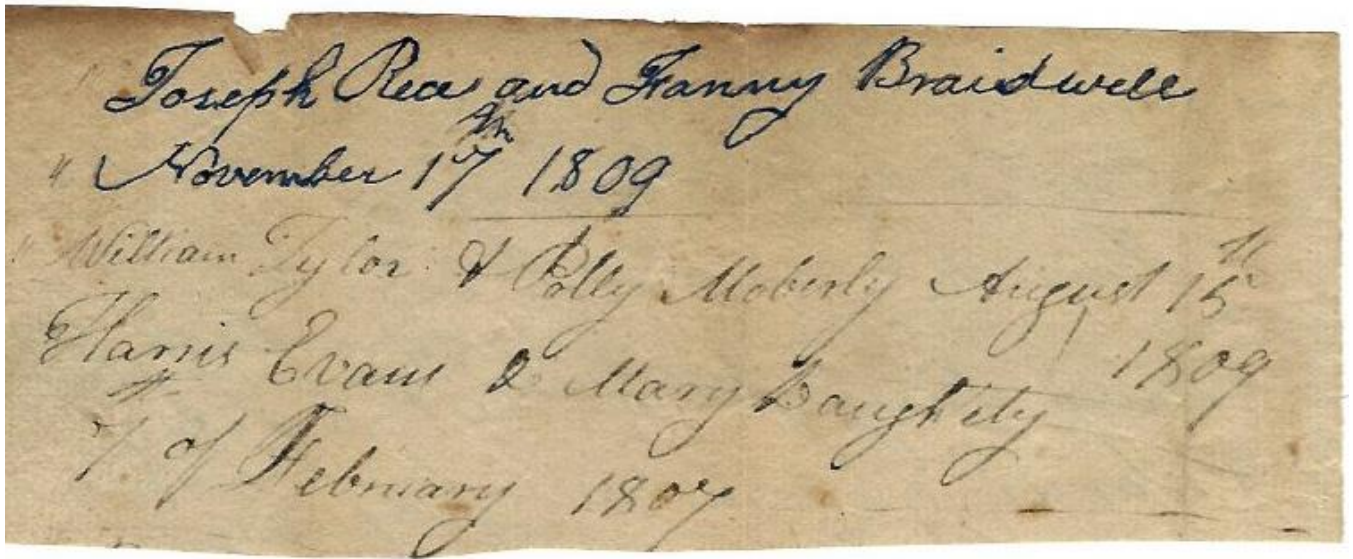 Joseph Rea and Fanny Braidwell
" November 17th 1809
" William Tylor & Polly Moberly August 15th
1809
Harris Evans & Mary Baughety
7th of February 1807